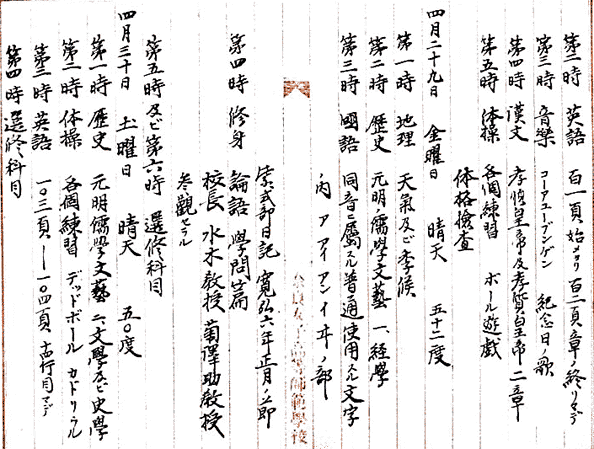 第二時 英語 百一頁始メヨリ百二頁章ノ終リマデ
第三時 音樂 コーアユーブンゲン 紀念日ノ歌
第四時 漢文 孝惶皇帝及孝質皇帝二章
第五時 体操 各個練習 ボール遊戯
体格檢査
四月二十九日 金曜日 晴天 五十二度
第一時 地理 天氣及ビ季候
第二時 歴史 元明ノ儒學文藝 一、経學
第三時 國語 同音ニ屬スル普通使用スル文字
ノ内 ア アイ アン イ ヰ ノ部
奈良女子高等師範學校
紫式部日記 寛弘六年正月ノ節
第四時 修身 論語 學問篇
校長 水木教授 菊澤助教授
参觀セラル
第五時及ビ第六時 選修科目
四月三十日 土曜日 晴天 五〇度
第一時 歴史 元明儒學文藝 二、文學及ビ史學
第二時 体操 各個練習 デッドボール カドリール
第三時 英語 一〇三頁―一〇四頁十四行目マデ
第四時 選修科目